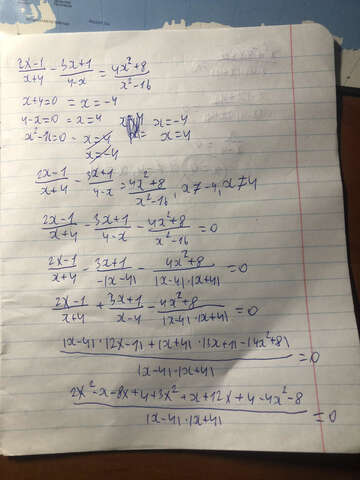 2x-1/x+4 - 3x+1/4-x = 4x²+8/x²-16
x+4=0 = x=-4
4-x=0 = x=4 x=-4
x²-16=0 - x=4 x=4
x=-4
2x-1/x+4 - 3x+1/4-x = 4x²+8/x²-16, x≠-4, x≠4
2x-1/x+4 - 3x+1/4-x - 4x²+8/x²-16 = 0
2x-1/x+4 - 3x+1/-|x-4| - 4x²+8/|x-4|·|x+4| = 0
2x-1/x+4 + 3x+1/x-4 - 4x²+8/|x-4|·|x+4| = 0
|x-4|·|2x-1|+|x+4|·|3x+1|-|4x²+8|/|x-4|·|x+4| = 0
2x²-x-8x+4+3x²+x+12x+4-4x²-8/|x-4|·|x+4| = 0